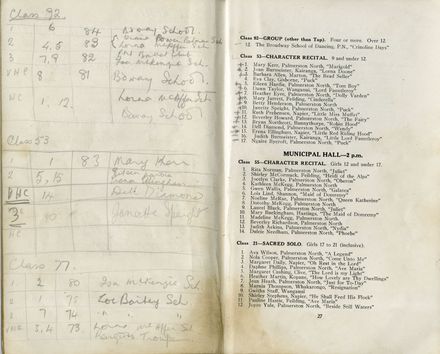 Class 92.
1 6 84 B'way School
2 4, 5 83
3 7, 9 82
VHC 8 81 B'way School.
1, 12, Lorna McAffer Sch
B'way School
Class 53
1 1 83 Mary Kerr
2 5, 15
VHC 14 Dell Dimond
3 Janette Speight
HC
Class 77
1 2 80 Joa McKenzie Sch
2 1 75
3 7 74 " "
VHC 3, 4 73 Lorna McAffer Sch
Class 92—GROUP (other than Tap). Four or more. Over 12.
12. The Broadway School of Dancing, P.N., "Crinoline Days"
Class 53—CHARACTER RECITAL. 9 and under 12.
1 Mary Kerr, Palmerston North, "Marigold"
2 Joan Burmeister, Kairanga, "Lorna Doone"
3 Barbara Allen, Marton, "The Bead Seller"
4 Eileen Hardie, Palmerston North, "Puck"
6 Dawn Taylor, Wanganui, "Lord Fauntleroy"
7 Heather Kyrn, Palmerston North, "Dolly Varden"
8 Mary Jarrett, Feilding, "Cinderella"
9 Betty Henderson, Palmerston North
10 Janette Speight, Palmerston North, "Puck"
11 Ruth Prebensen, Napier, "Little Miss Muffet"
12 Beverley Howard, Palmerston North, "The Fairy"
13 Bryan Northcott, Bunnythorpe, "Robin Hood"
14 Dell Dimond, Palmerston North, "Wendy"
15 Emma Ellingham, Napier, "Little Red Riding Hood"
16 Judith Burmeister, Kairanga, "Little Lord Fauntleroy"
17 Ngaire Bycroft, Palmerston North, "Puck"
MUNICIPAL HALL—2 p.m.
Class 55—CHARACTER RECITAL. Girls 12 and under 17.
1 Rita Norman, Palmerston North, "Juliet"
2 Shirley McCormack, Feilding, "Heidi of the Alps"
3 Jocelyn Clarke, Palmerston North, "Oberon"
4 Kathleen McKegg, Palmerston North
5 Gwen Wallis, Palmerston North, "Galatea"
6 Lola Lind, Shannon, "Maid of Domremy"
7 Nadine McRae, Palmerston North, "Queen Katherine"
8 Dorothy McKegg, Palmerston North
9 Laurel Black, Palmerston North, "Juliet"
10 Mary Buckingham, Hastings, "The Maid of Domremy"
11 Madeline McKegg, Palmerston North
12 Beverley Richardson, Palmerston North
13 Judith Askins, Palmerston North, "Nydia"
14 Dulcie Needham, Palmerston North, "Phoebe"
Class 21—SACRED SOLO. Girls 17 to 21 (inclusive).
1 Ava Wilson, Palmerston North, "A Legend"
2 Nola Cooper, Palmerston North, "Come Unto Me"
3 Margaret Daily, Napier, "Oh Rest in the Lord"
4 Daphne Phillips, Palmerston North, "Ave Maria"
5 Margaret Cushing, Clive, "The Lord is my Light"
6 Heather Martin, Koputu, "How Lovely are Thy Dwellings"
7 Jean Heath, Palmerston North, "Just for To-Day"
8 Marnia Thompson, Whakarongo, "Resignation"
9 Gaitha Staff, Wanganui
10 Shirley Stephens, Napier, "He Shall Feed His Flock"
11 Pauline Harris, Feilding, "Ave Maria"
12 Joyce Vale, Palmerston North, "Beside Still Waters"
27